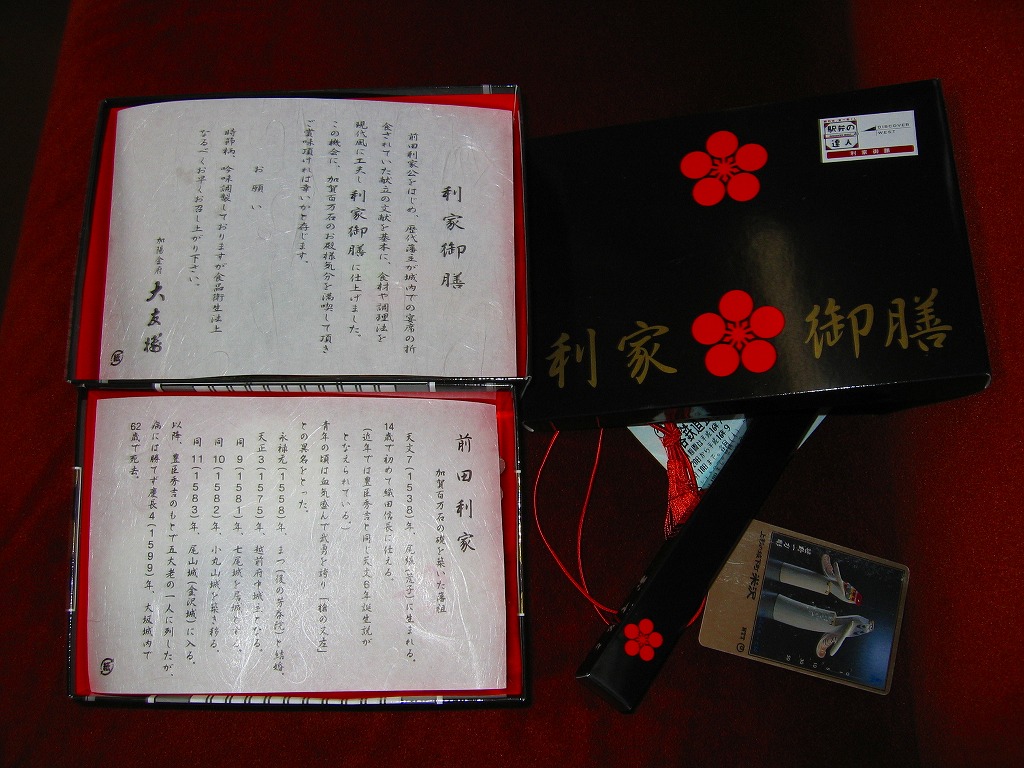 利家御膳
前田利家公をはじめ、歴代藩主が城内での宴席の折
食されていた献立の文献を基本に、食材や調理法を
現代風に工夫し利家御膳に仕上げました。
この機会に、加賀百万石のお殿様気分を満喫して頂き
ご賞味頂ければ幸いかと存じます。
お願い
時節柄、吟味調製しておりますが食品衛生法上
なるべくお早くお召し上がり下さい。
加陽金府
大友樓
前田利家
加賀百万石の礎を築いた藩祖
天文7(1538)年、尾張(荒子)に生まれる。
14歳で初めて織田信長に仕える。
(近年では豊臣秀吉と同じ天文6年誕生説が
となえられている。)
青年の頃は血気盛んで武勇を誇り「槍の又左」
との異名をとった。
永禄元(1558)年、まつ(後の芳春院)と結婚。
天正3(1575)年、越前府中城主となる。
同9(1581)年、七尾城を居城とする。
同10(1582)年、小丸山城を築き移る。
同11(1583)年、尾山城(金沢城)に入る。
以降、豊臣秀吉のもとで五大老の一人に列したが、
病には勝てず慶長4(1599)年、大坂城内で
62歳で死去。
駅弁の
達人
DISCOVER
WEST
利家御膳
利家御膳
米沢